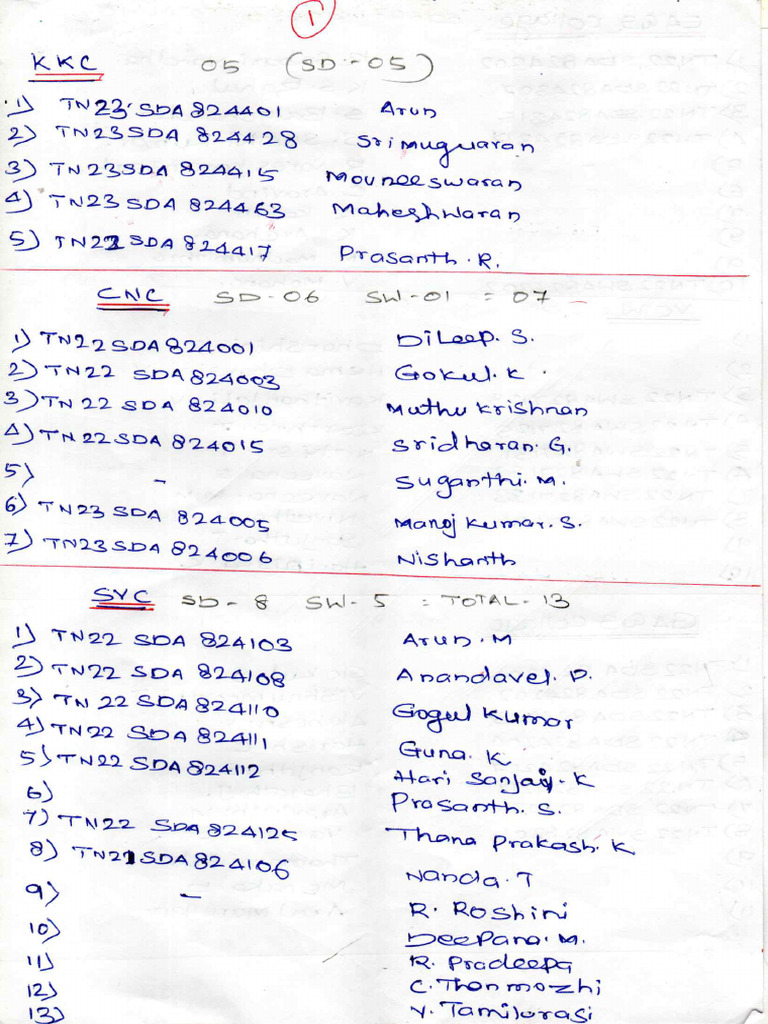 1
KKC 05 (SD-05)
1) TN23 SDA 824401 Arun
2) TN23SDA 824428 Srimuguaran
3) TN23SDA 824415 Mouneeswaran
4) TN23 SDA 824463 Maheshwaran
5) TN22 SDA 824417 Prasanth.R.
CNC SD-06 SW-01 = 07
1) TN22SDA824001 Dileep. S.
2) TN22 SDA 824003 Gokul.K
3) TN 22 SDA 824010 Muthu Krishnan
4) TN22SDA 824015 Sridharan.G.
5) - Suganthi.M.
6) TN23 SDA 824005 Manoj Kumar.S.
7) TN23SDA 824006 Nishanth
SVC SD-8 SW-5 = TOTAL-13
1) TN22 SDA 824103 Arun.M
2) TN22 SDA 824108 Anandavel.D.
3) TN 22 SDA 824110 Gogul Kumar
4) TN22 SDA 824111 Guna.K
5) TN22 SDA 824112 Hari Sanjay.K
6) Prasanth.S.
7) TN22 SDA 824125 Thana Prakash.K
8) TN21SDA 824106 Nanda.T
9) - R. Roshini
10) Deepana.M.
11) R. Pradeepa
12) C.Thenmozhi
13) V. Tamilarasi